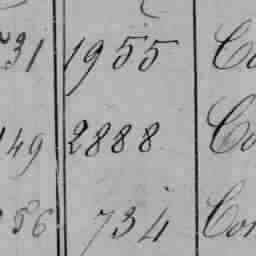 731 1955 Co
149 2888 Co
256 734 Con